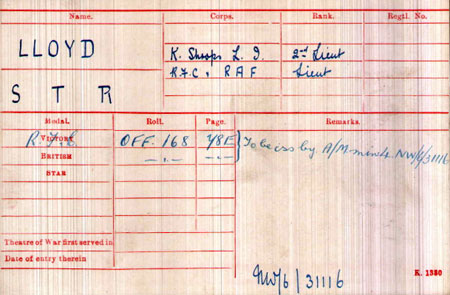 Name. Corps. Rank. Regtl. No.
LLOYD K. Shrops L. I. 2nd Lieut
S T R R.F.C. & RAF Lieut
Medal. Roll. Page. Remarks.
VICTORY OFF. 168 78E To be iss by A/M minute NW/6/31116
BRITISH —.— —.—
STAR
Theatre of War first served in
Date of entry therein
NW/6/31116 K. 1380